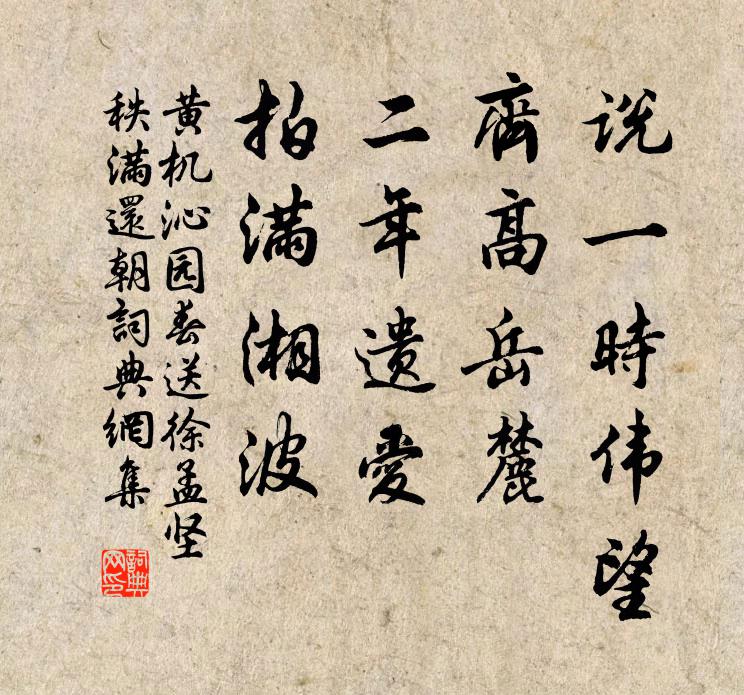 说一時伟望
齊高岳麓
二年遗愛
拍满湘波
黄机沁园春送徐孟坚
秩满還朝詞典網集
詞典网印